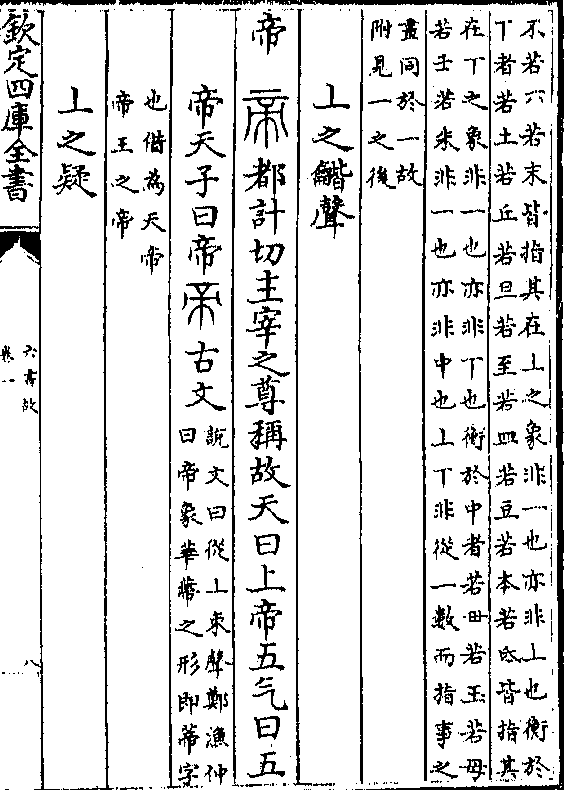 不若六若末皆指其在丄之象非一也亦非丄也衡於
丅者若土若丘若旦若至若皿若豆若本若氐皆指其
在丅之象非一也亦非丅也衡於中者若毌若玉若母
若壬若朱非一也亦非中也丄丅非從一數而指事之
盡同於一故
附見一之後
丄之龤聲
帝 帝都計切主宰之尊稱故天曰上帝五气曰五
帝天子曰帝帝古文
說文曰從丄朿聲鄭漁仲
曰帝象華蔕之形即蔕字
也借為天帝
帝王之帝
丄之疑
欽定四庫全書
六書故
卷一
八